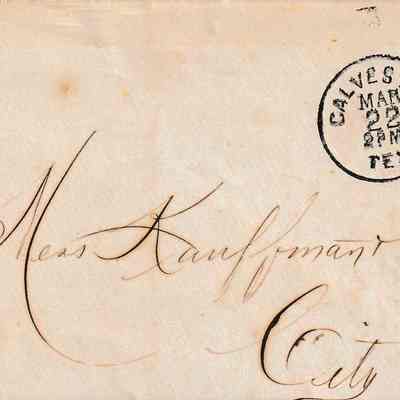 GALVES
MAR
22
2PM
TEX
Mess Kauffman
City